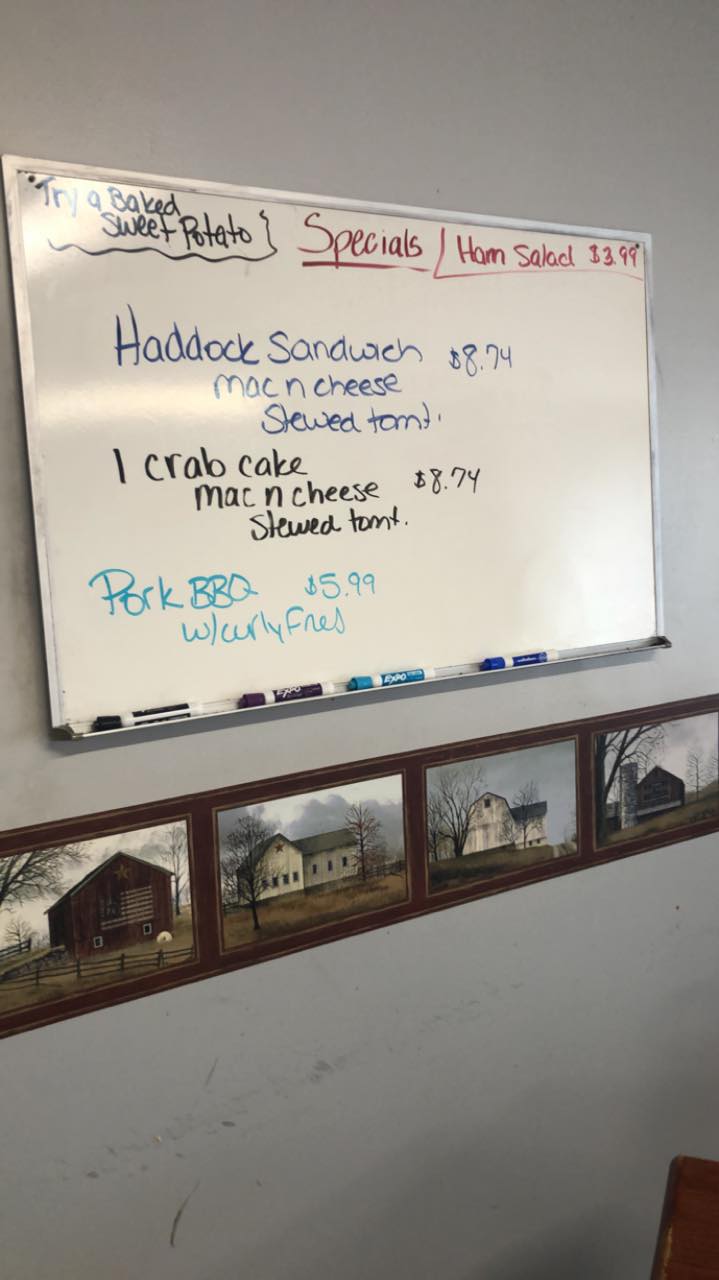 Try a Baked
Sweet Potato
Specials
Ham Salad $3.99
Haddock Sandwich $8.74
mac n cheese
Stewed tomt.
1 crab cake
mac n cheese $8.74
Stewed tomt.
Pork BBQ $5.99
w/curly Fries
EXPO
EXPO